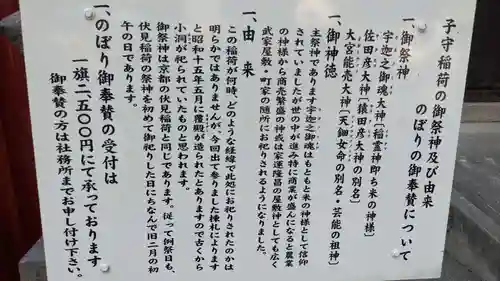 子守稲荷の御祭神及び由来
のぼりの御奉賛について
一、御祭神
宇迦之御魂大神〔稲霊神即ち米の神様〕
佐田彦大神〔猿田彦大神の別名〕
大宮能売大神〔天鈿女命の別名・芸能の祖神〕
一、御神徳
主祭神であります宇迦之御魂はもともと米の神様として信仰
されていましたが世の中が進み特に商業が盛んになると農業
の神様から商売繁盛の神或は家運隆昌の屋敷神としても広く
武家屋敷・町家の随所にお祀りされるようになりました。
一、由来
この稲荷が何時、どのような経緯で此処にお祀りされたのかは
明らかではありませんが、今回出て参りました棟札によります
と昭和十五年五月に覆殿が造られたとありますので古くから
小洞が祀られていたものと思われます。
御祭神は京都の伏見稲荷と同じであります。従って例祭日も、
伏見稲荷の祭神を初めて御祀りした日にちなんで旧二月の初
午の日であります。
一、のぼり御奉賛の受付は
一旗二、五〇〇円にて承っております
御奉賛の方は社務所までお申し付け下さい。